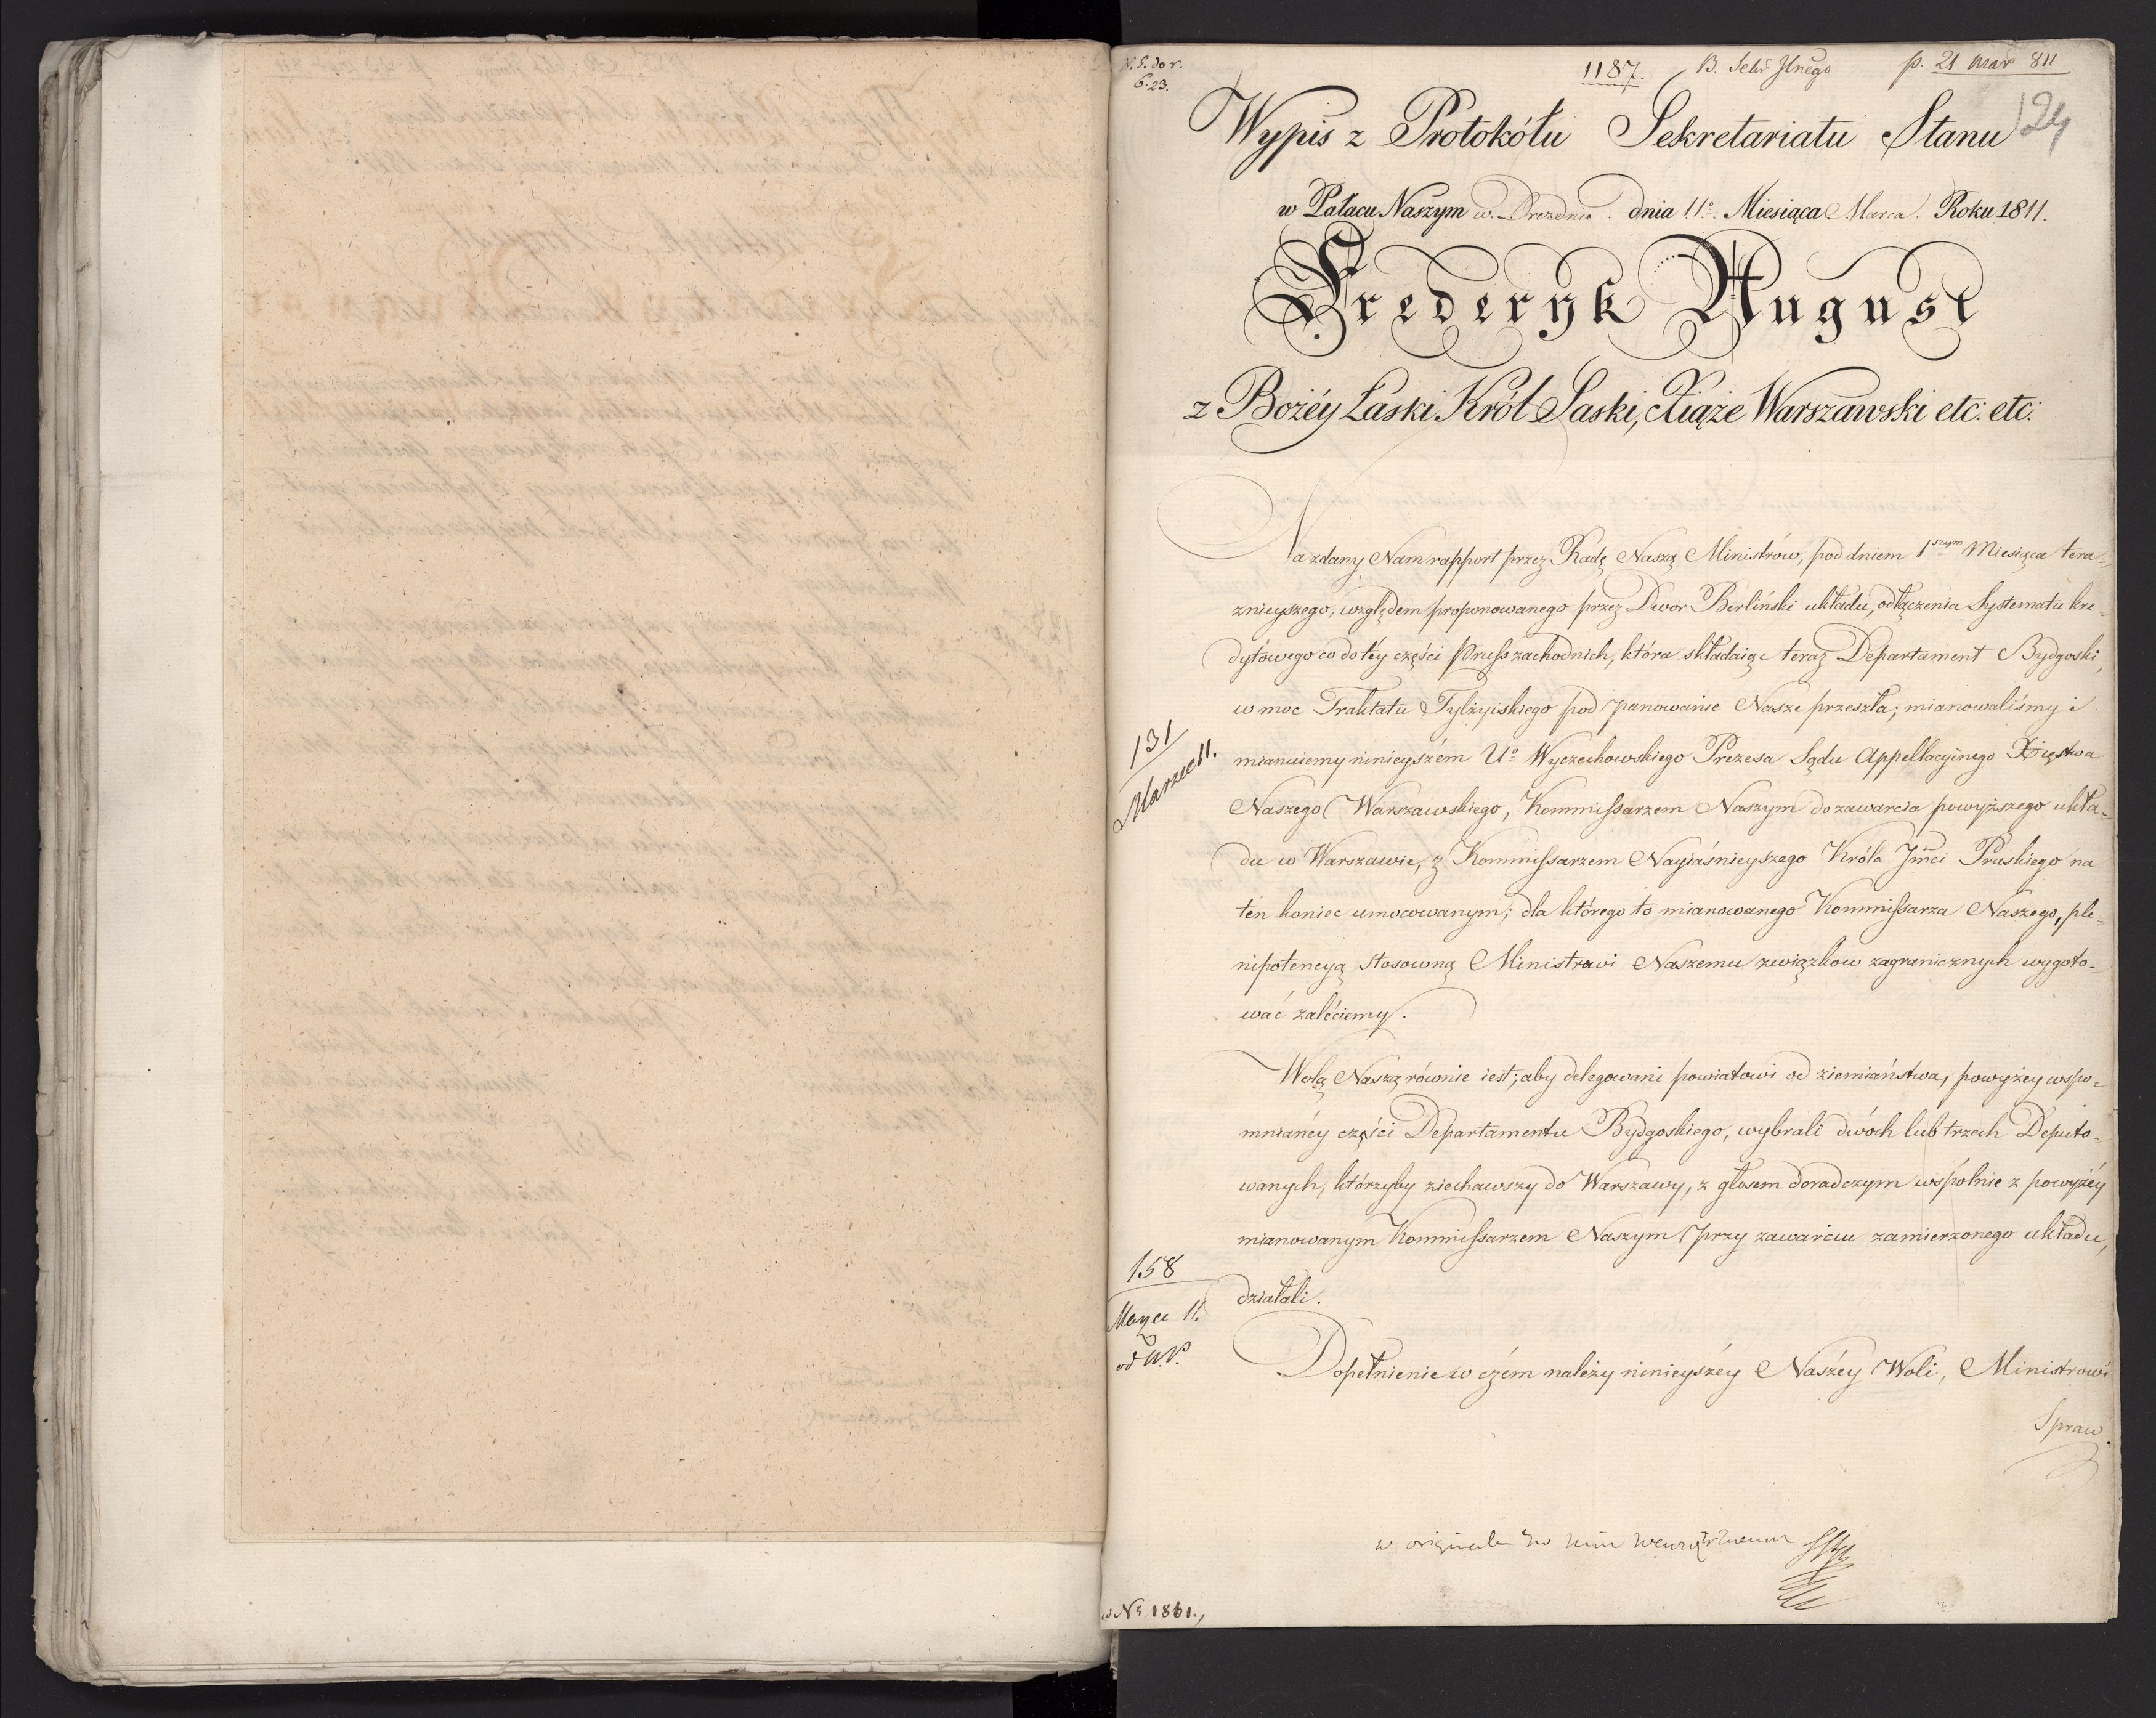 1187. p. 21 Mar 811
124
Wypis z Protokółu Sekretariatu Stanu
w Pałacu Naszym w Dreznie. dnia 11º. Miesiąca Marca. Roku 1811.
Frederyk August
z Bożéy Łaski Król Saski, Xiąże Warszawski etc: etc:
Na zdany Nam rapport przez Radę Naszą Ministrów, pod dniem 1szym Miesiąca tera-
znieyszego, względem proponowanego przez Dwor Berliński układu, odłączenia Systematu kre-
dytowego co do téy części Pruss zachodnich, która składaiąc teraz Departament Bydgoski,
w moc Traktatu Tylżyiskiego pod panowanie Nasze przeszła; mianowaliśmy i
mianuiemy ninieyszém Uº Wyczechowskiego Prezesa Sądu Appellacyinego Xięstwa
Naszego Warszawskiego, Kommissarzem Naszym do zawarcia powyższego ukła-
du w Warszawie, z Kommissarzem Nayiáśnieyszego Króla Jmci Pruskiego na
ten koniec umocowanym; dla którego to mianowanego Kommissarza Naszego, ple-
nipotencyą stosowną Ministrowi Naszemu związkow zagranicznych wygoto-
wać zaléciemy.
131
Marzec 11.
Wolą Naszą równie iest; aby delegowani powiatowi od ziemiaństwa, powyżey wspo-
mnianéy części Departamentu Bydgoskiego, wybrali dwóch lub trzech Deputo-
wanych, którzyby ziechawszy do Warszawy, z głosem doradczym wspólnie z powyżéy
mianowanym Kommissarzem Naszym przy zawarciu zamierzonego układu,
działali.
158
11.
Dopełnienie w czém należy ninieyszéy Naszéy Woli, Ministrowi
Spraw
w
w Nr 1861.,